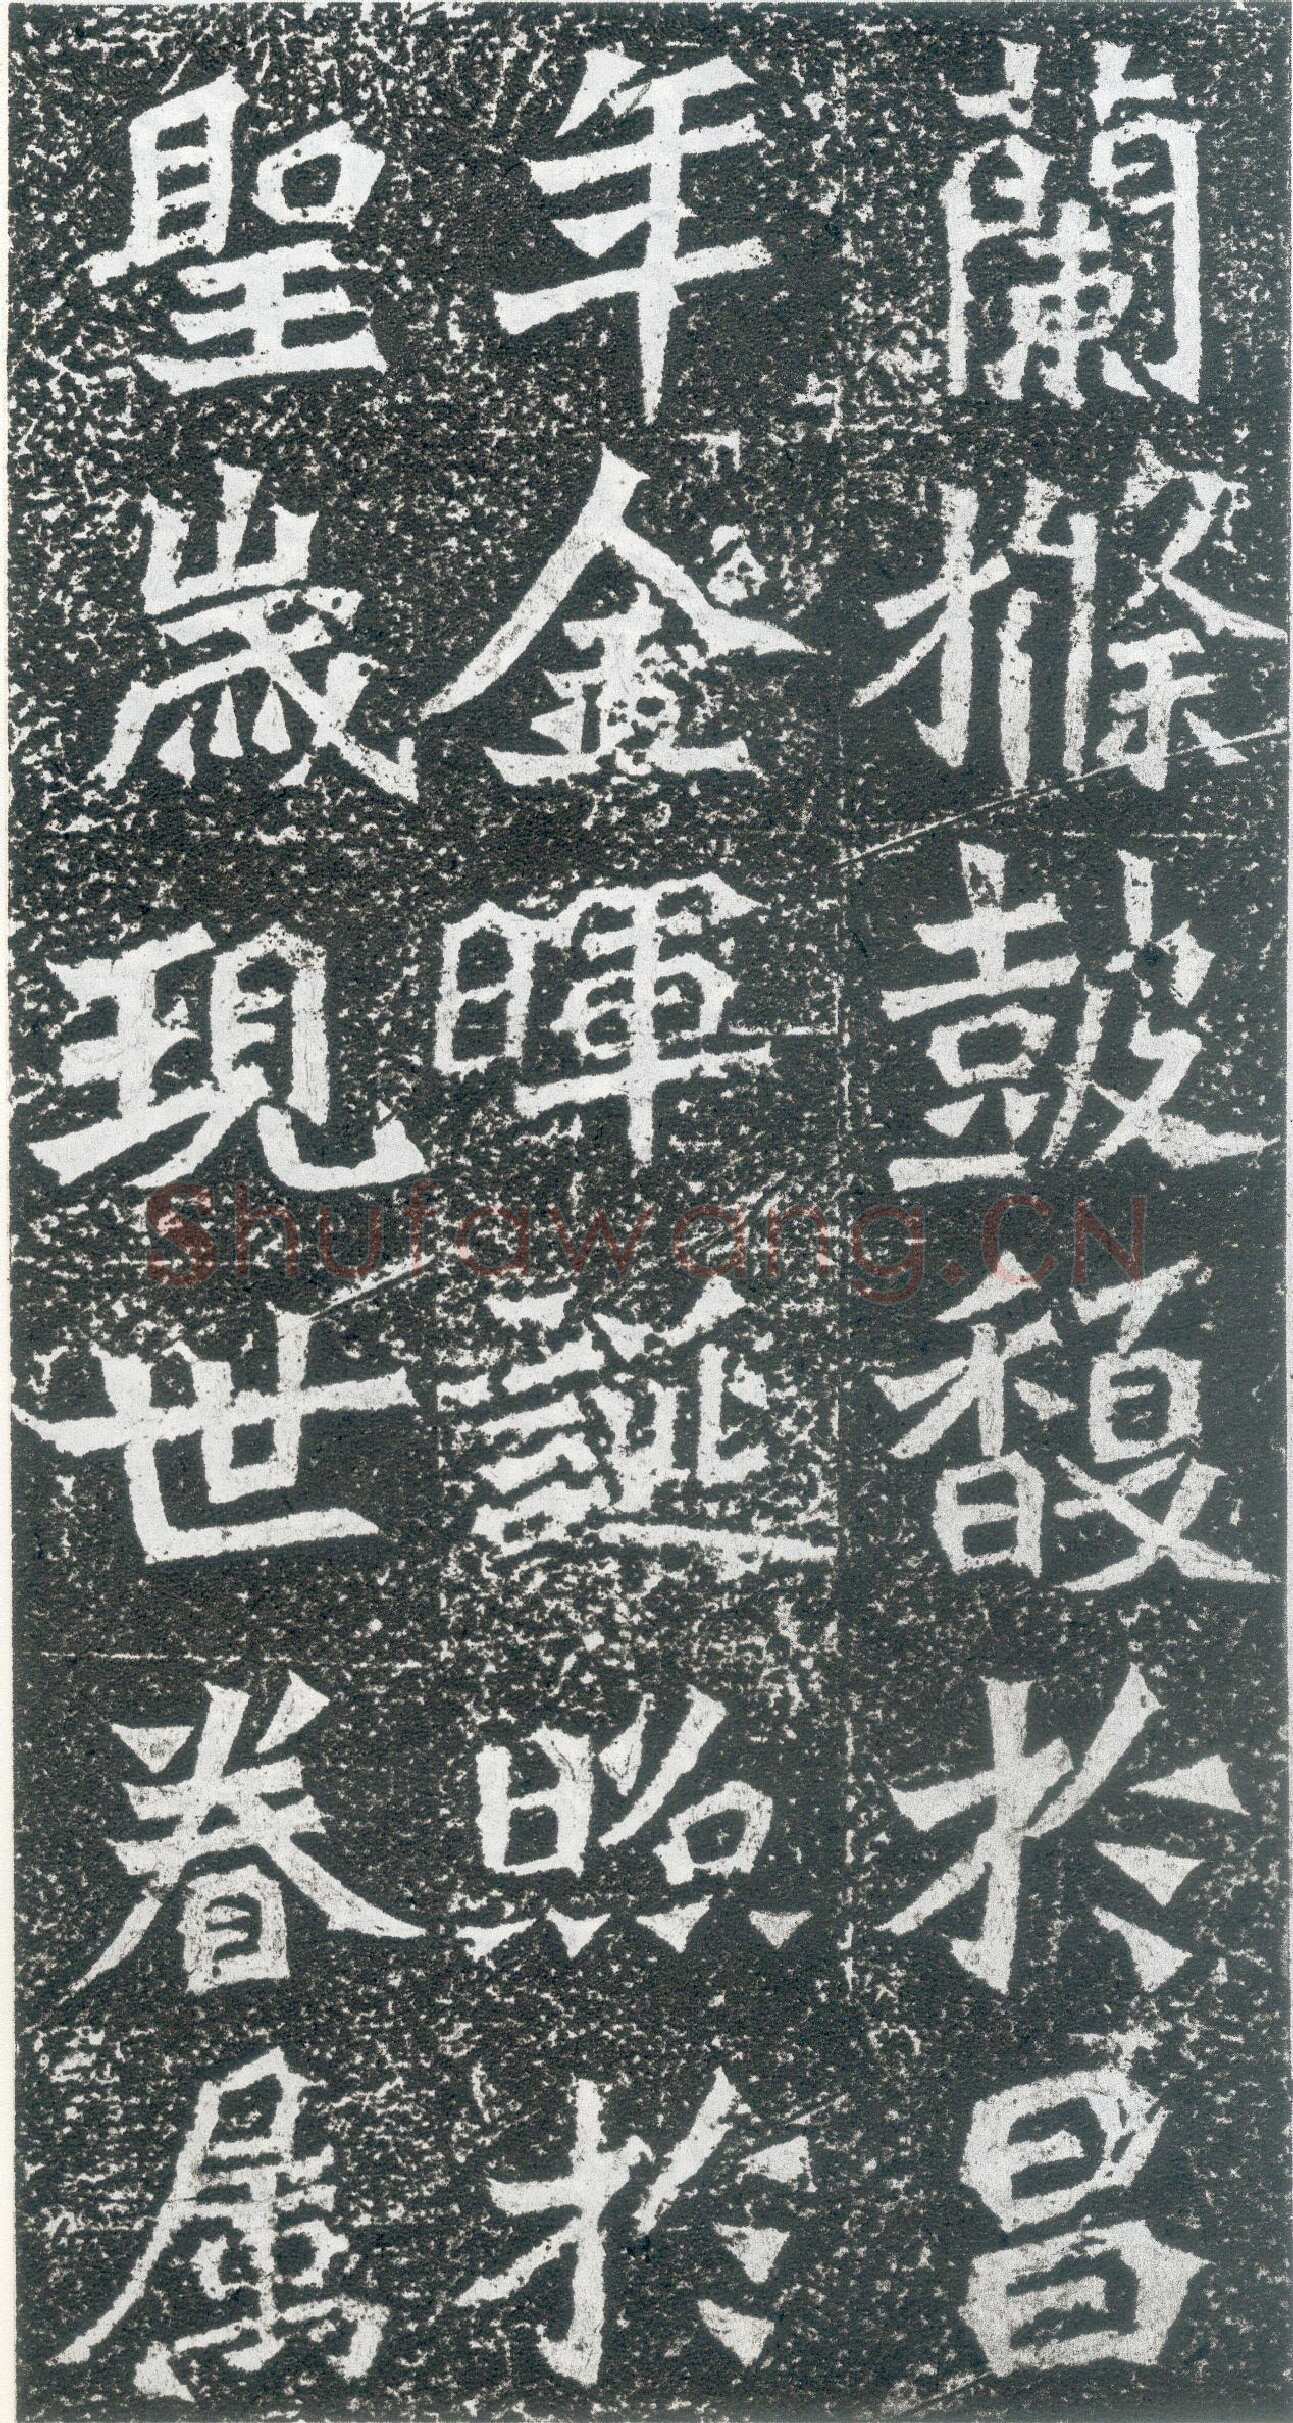 蘭條鼓馥於昌
年金暉誕照於
聖歲現世眷属
Shufawang.CN